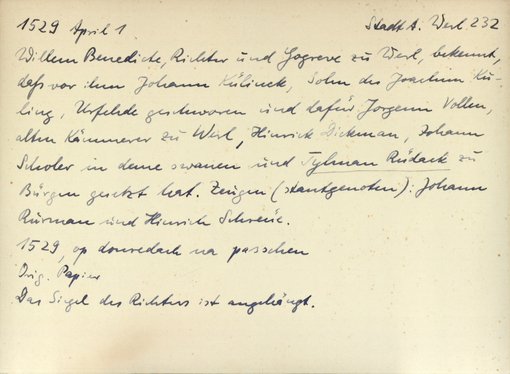 1529 April 1. Stadt A. Werl 232
Willem Benedicte, Richter und Gogreve zu Werl, bekennt,
daß vor ihm Johann Külinck, Sohn des Joachim Kü-
ling, Urfehde geschworen und dafür Jorgenn Vollen,
alten Kämmerer zu Werl, Hinrick Dickman, Johann
Scholer in deme swanen und Tylman Rüdack zu
Bürgen gesetzt hat. Zeugen (stantgenoten): Johann
Rurman und Hinrich Schreüe.
1529, op donredach na passchen
Orig. Papier
Das Siegel des Richters ist angehängt.